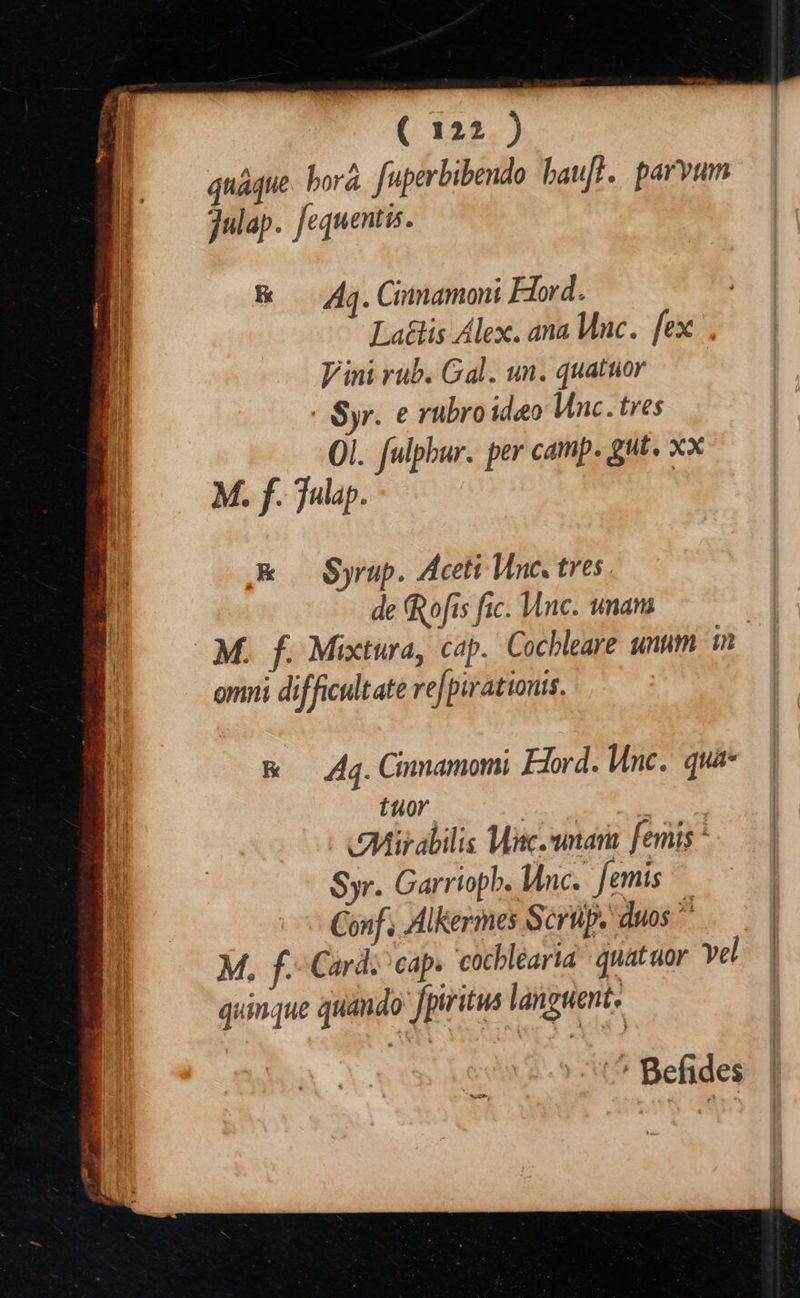 ( 122 )
quâque horâ ſuperbibendo hauſt. parvum
Julap. ſequentis.
℞ Aq. Cinnamoni Hord.
Lactis Alex. ana Unc. ſex .
Vini rub. Gal. un. quatuor
Syr. e rubro idæo Unc. tres
Ol. ſulphur. per camp. gut. xx
M. f. Julap.
℞ Syrup. Aceti Unc. tres.
de Roſis ſic. Unc. unam
M. f. Mixtura, cap. Cochleare unum in
omni difficultate reſpirationis.
℞ Aq. Cinnamomi Hord. Unc. qua-
tuor
Mirabilis Unc. unam ſemis
Syr. Garrioph. Unc. ſemis
Conf. Alkermes Scrup. duos
M. f. Card. cap. cochlearia quatuor vel
quinque quando ſpiritus languent.
Beſides